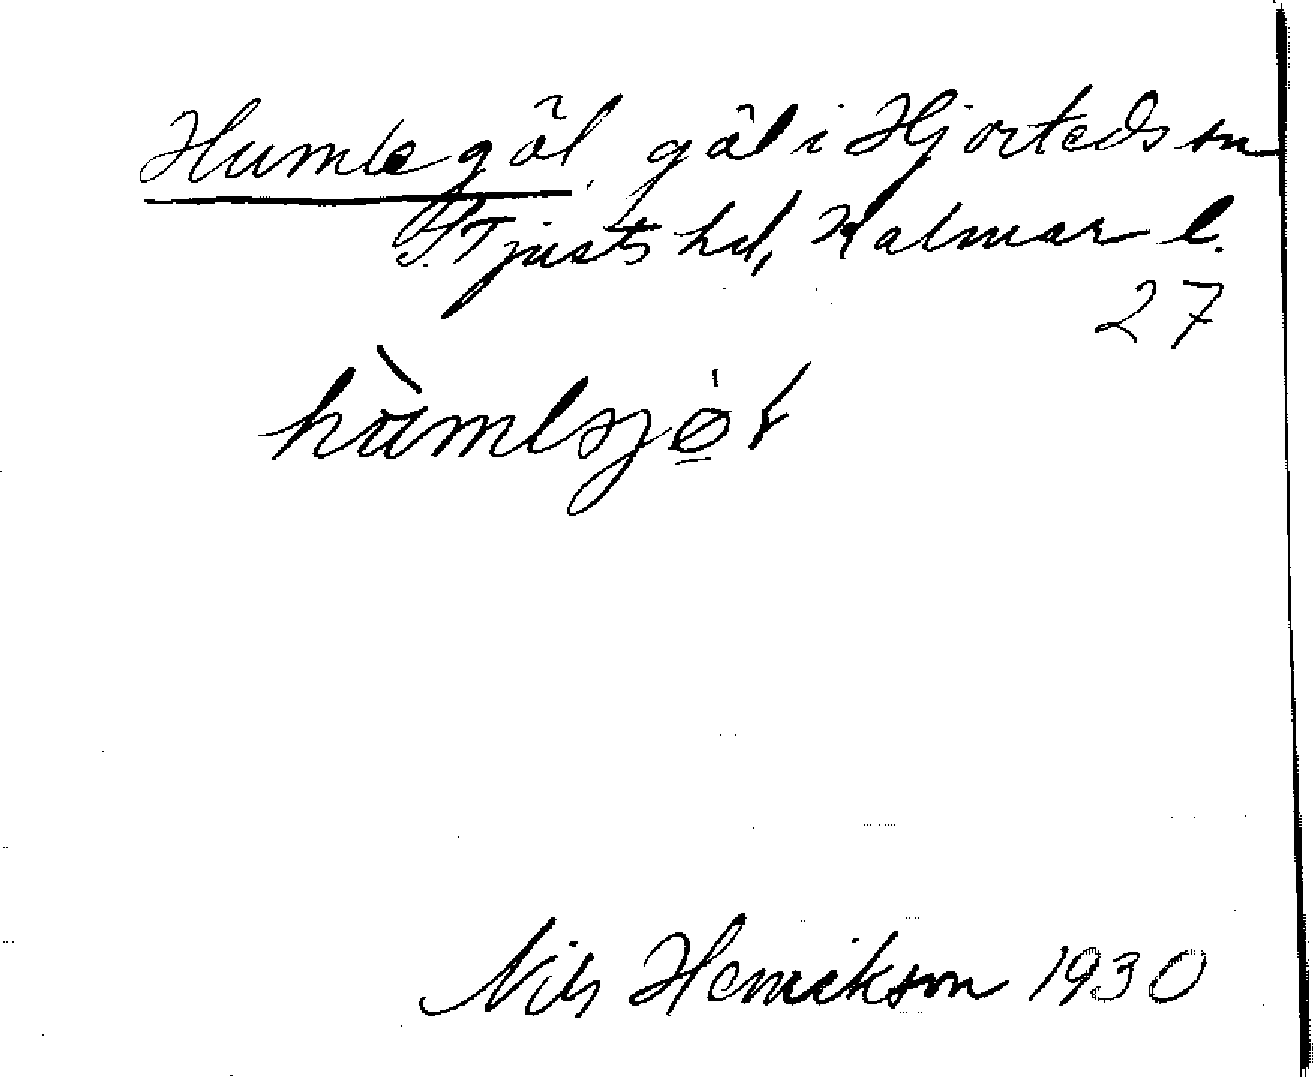 Humlegöl, göl i Hjorteds sn
S. Tjusts hd, Kalmar l.
27
Nils Henrikson 1930